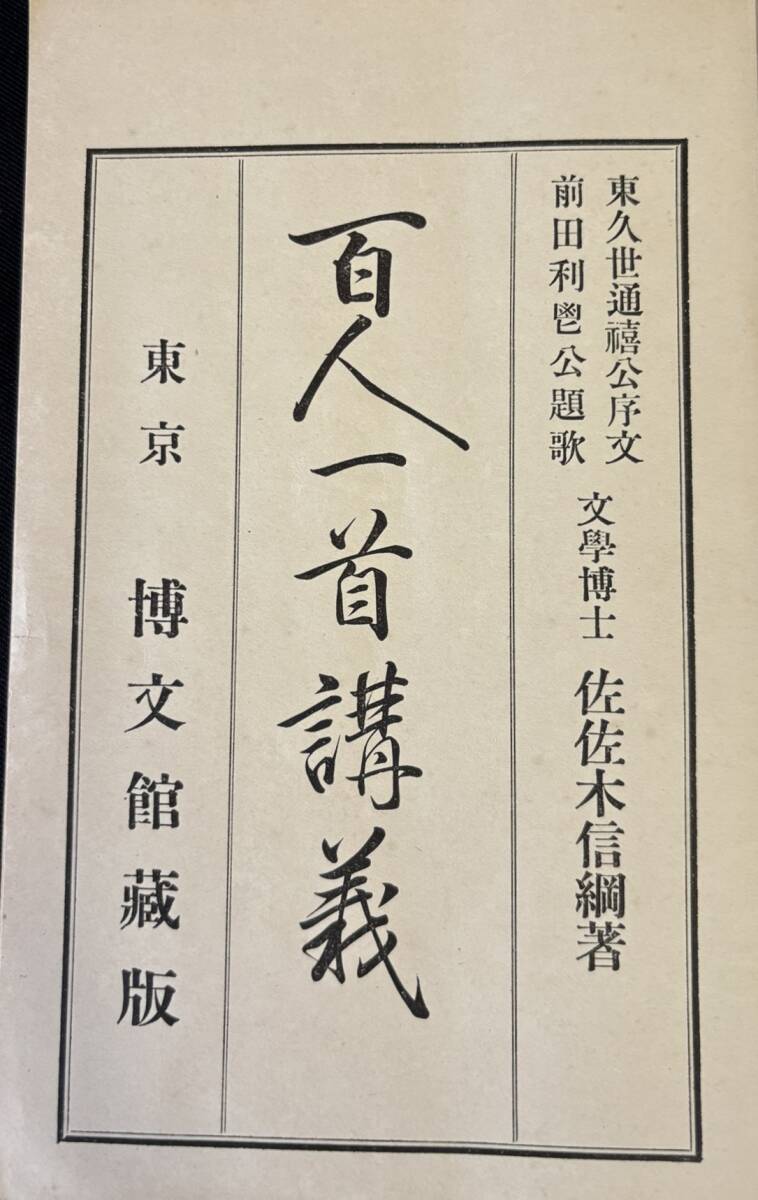 東久世通禧公序文
前田利鬯公題歌
文學博士 佐佐木信綱著
百人一首講義
東京 博文館藏版